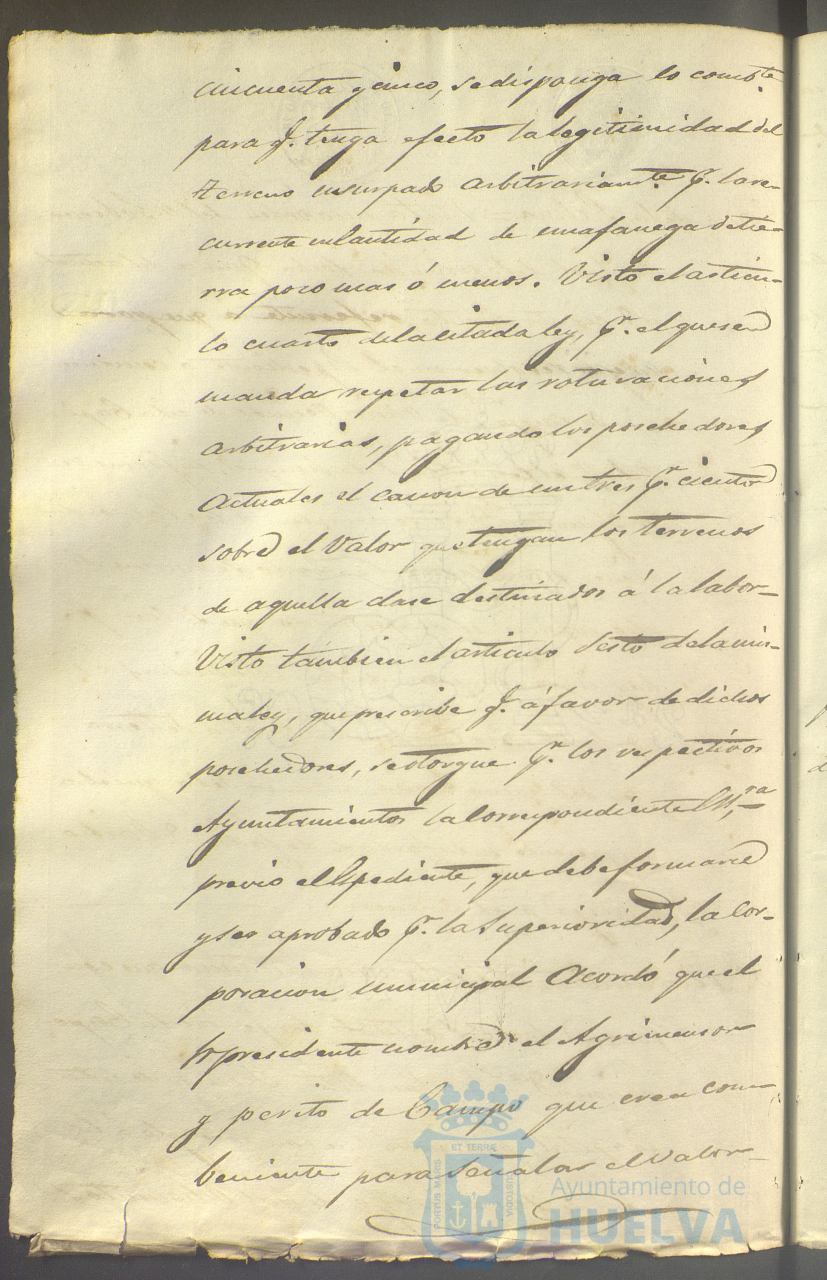 cincuenta y cinco, se disponga lo combte.
para q.e tenga efecto la legitimidad del
terreno usurpado arbitrariamte. pr. la re-
currente en cantidad de una fanega de tie-
rra poco mas ó menos. Visto el artícu-
lo cuarto de la citada ley, pr. el que se
manda respetar las roturaciones
arbitrarias, pagando los posehedores
actuales el canon de un tres pr. ciento
sobre el valor que tengan los terrenos
de aquella clase destinados á la labor-
Visto tambien el articulo sesto de la mis-
ma ley, que prescribe q.e á favor de dichos
posehedores, se otorgue pr. los respectivos
Ayuntamientos la correspondiente Essra.
previo el Espediente, que debe formarse
y ser aprobado pr. la Superioridad, la Cor-
poracion municipal Acordó que el
Sr. presidente nombre el Agrimensor
y perito de Campo que crea con-
beniente para señalar el valor
ET TERRÆ
PORTUS MARIS
CUSTODIA
Ayuntamiento de
HUELVA